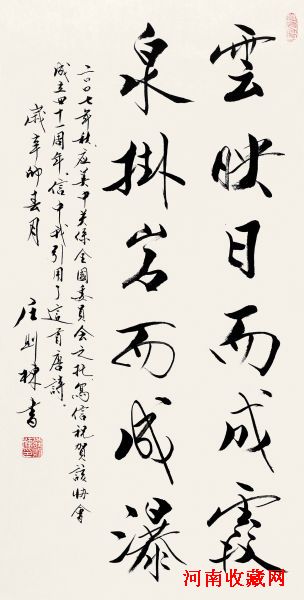 雲映日而成霞
泉掛岩而成瀑
二〇〇七年秋,应美中关係全國委員会之托寫信祝贺该协會
成立四十一周年,信中我引用了這首唐詩.
歲辛卯春月
庄则棟書
河南收藏网